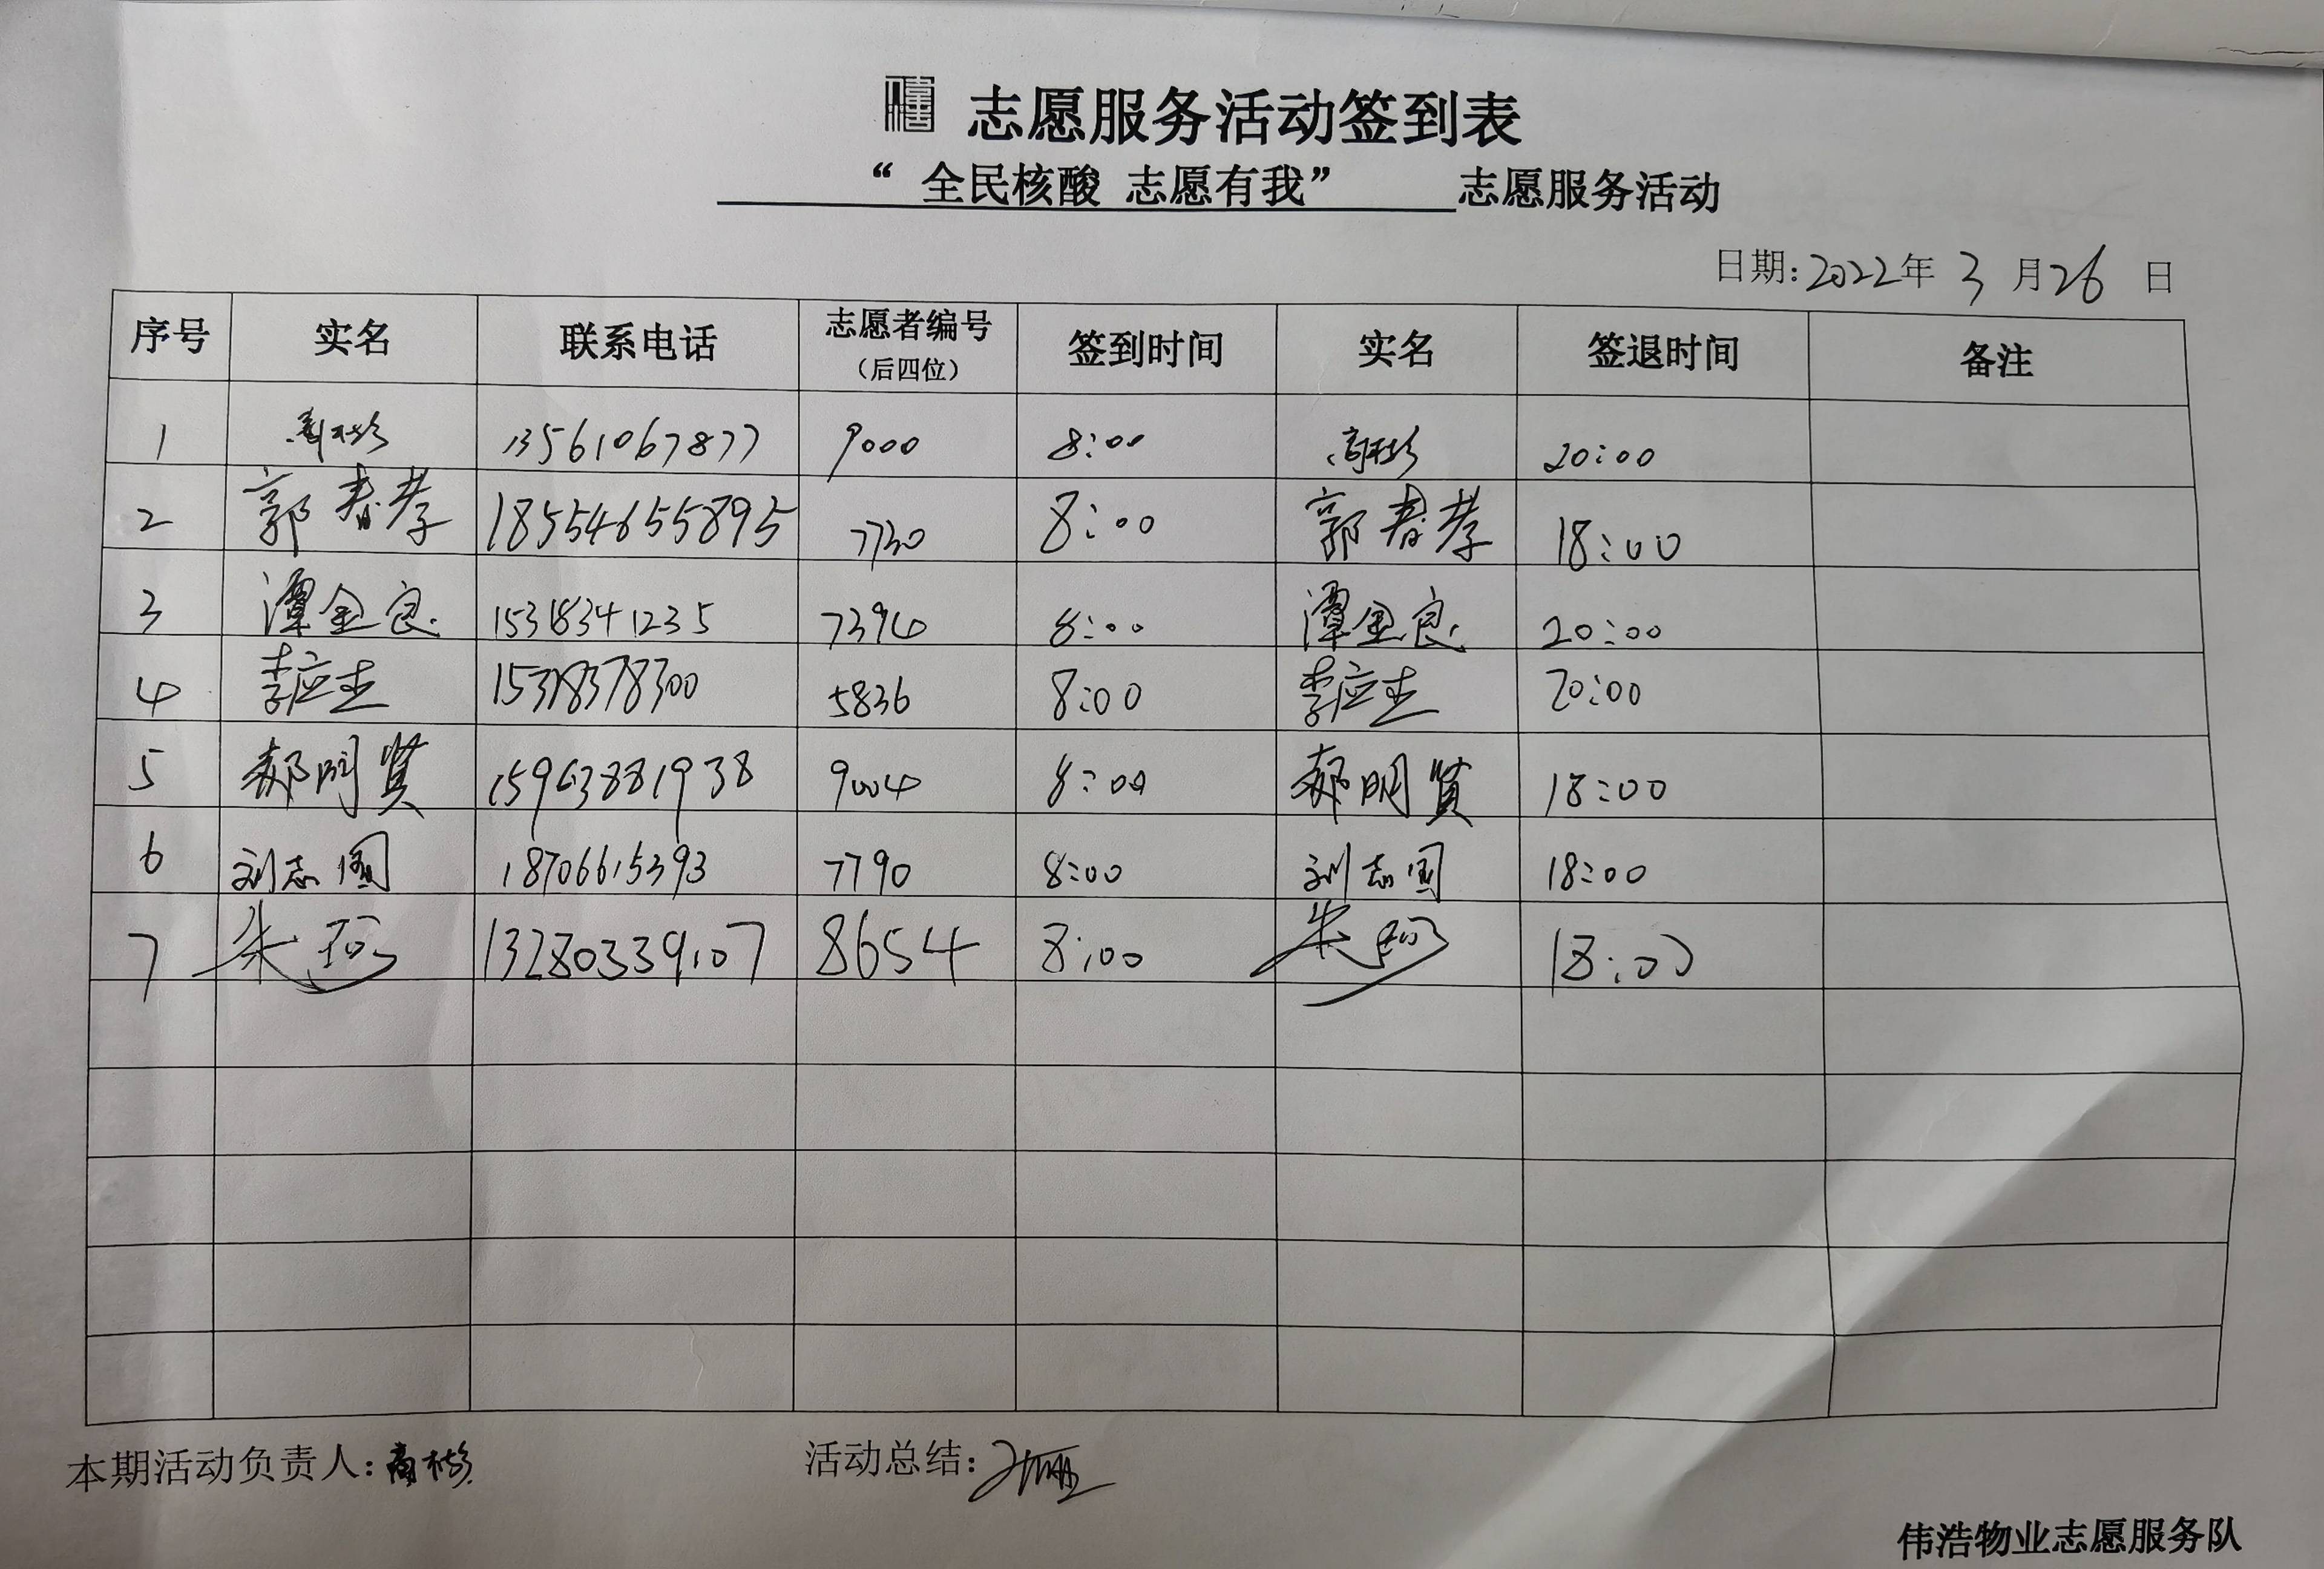 志愿服务活动签到表
“ 全民核酸 志愿有我” 志愿服务活动
日期:2022年 3 月26 日
序号 实名 联系电话 志愿者编号（后四位） 签到时间 实名 签退时间 备注
1 13561067877 9000 8:00 20:00
2 郭春孝 18554655895 7730 8:00 郭春孝 18:00
3 潭金良 15318341235 7394 8:00 潭金良 20:00
4 李应 15318378300 5836 8:00 李应 20:00
5 郝明贤 15963881938 9004 8:00 郝明贤 18:00
6 刘志国 18706615393 7790 8:00 刘志国 18:00
7 朱 13280339107 8654 8:00 朱 18:00
本期活动负责人: 活动总结:
伟浩物业志愿服务队